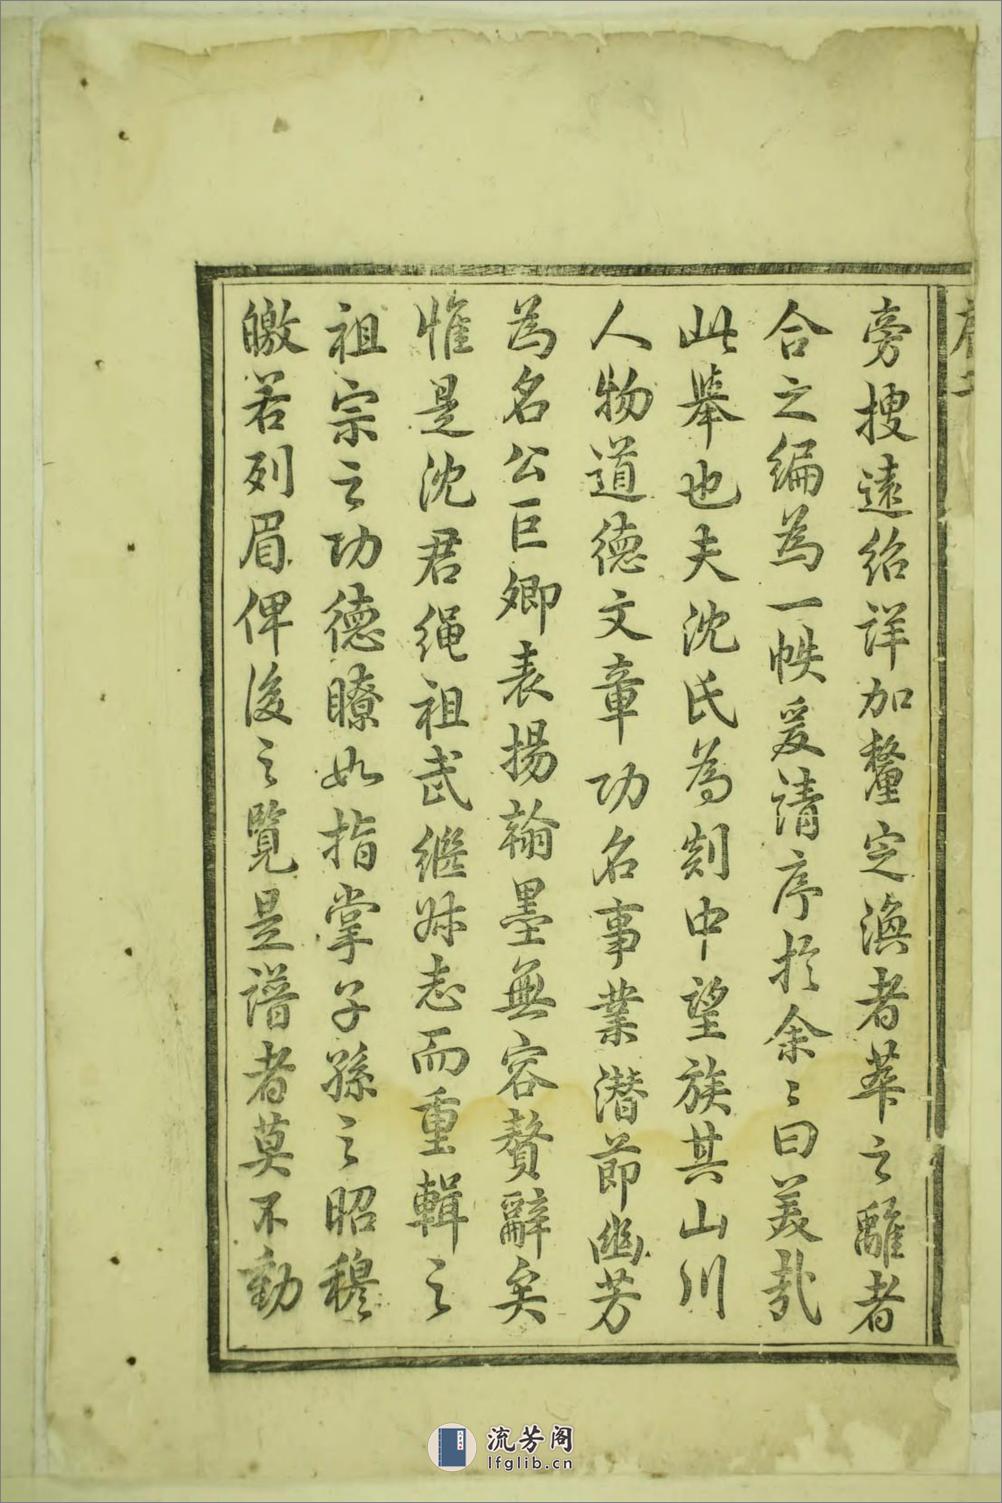 旁搜遠紹詳加釐定渙者萃之離者
合之編為一帙爰請序於余〻曰美哉
此舉也夫沈氏為剡中望族其山川
人物道德文章功名事業潛節幽芳
為名公巨卿表揚翰墨無容贅辭矣
惟是沈君繩祖武繼妣志而重輯之
祖宗之功德瞭如指掌子孫之昭穆
皦若列眉俾後之覽是譜者莫不動
流芳阁
lfglib.cn